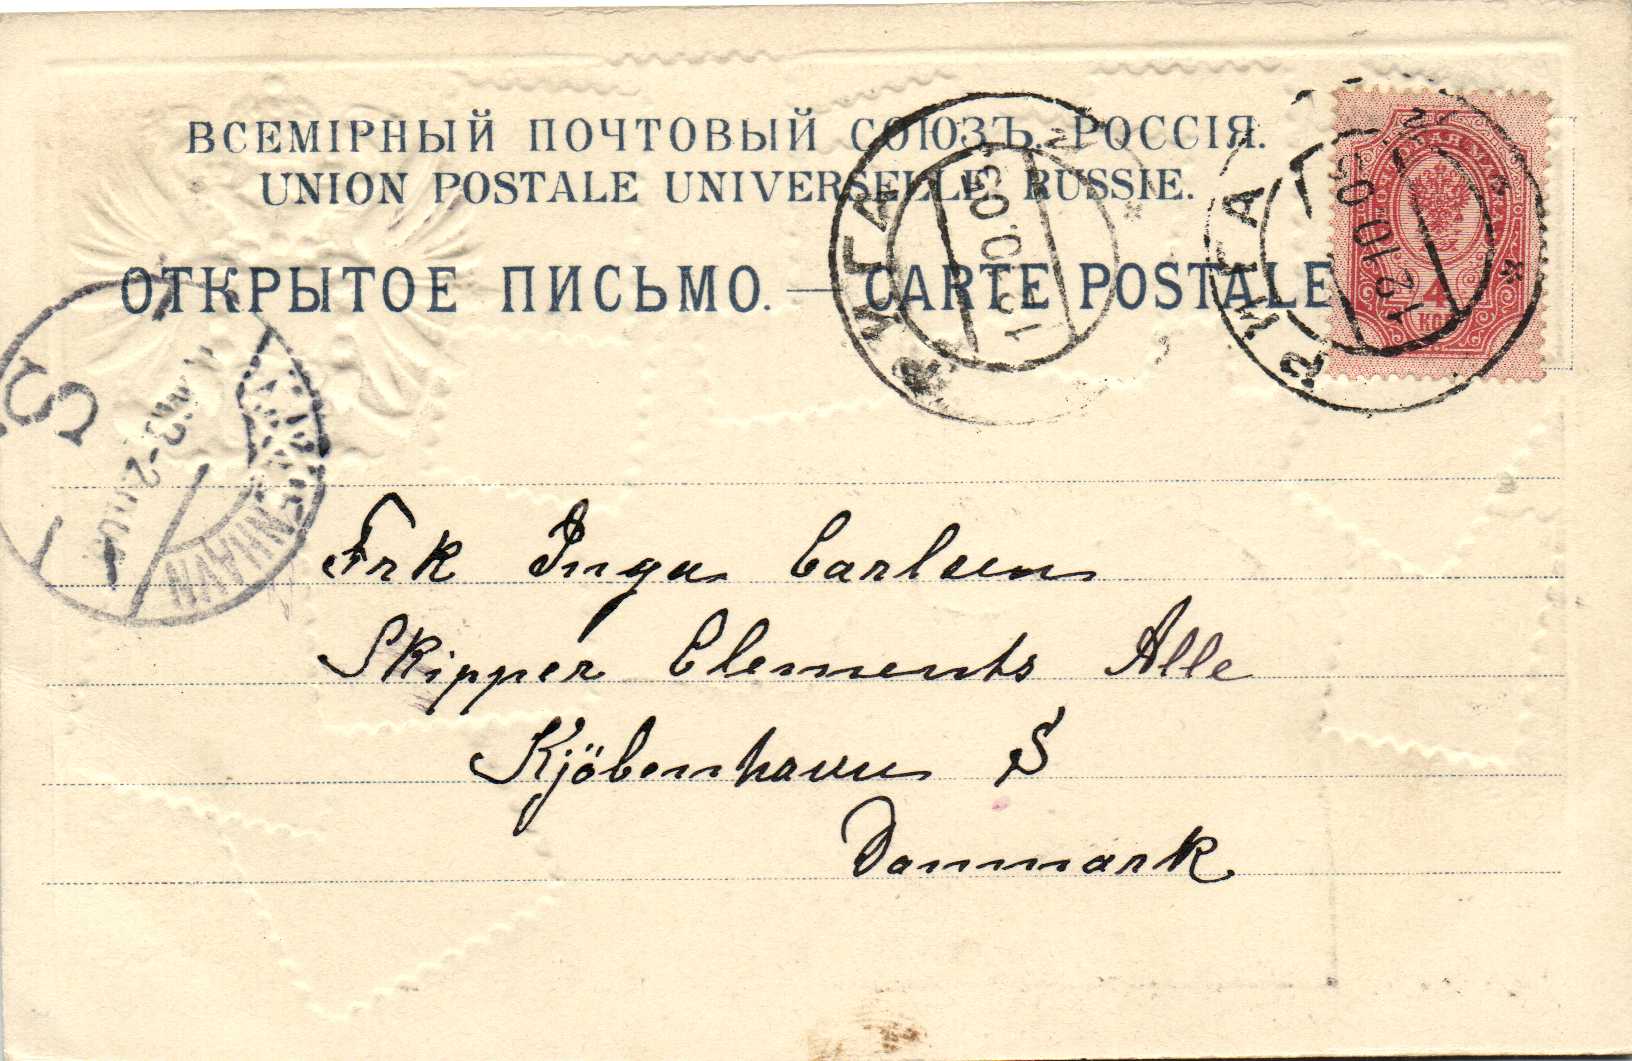 ВСЕМІРНЫЙ ПОЧТОВЫЙ СОЮЗЪ. РОССІЯ.
UNION POSTALE UNIVERSELLE. RUSSIE.
ОТКРЫТОЕ ПИСЬМО. — CARTE POSTALE
РИГА
12.10.03
РИГА
12.10.03
4
КОП.
Frk Inga Carlsen
Skipper Clements Alle
Kjöbenhavn S
Danmark